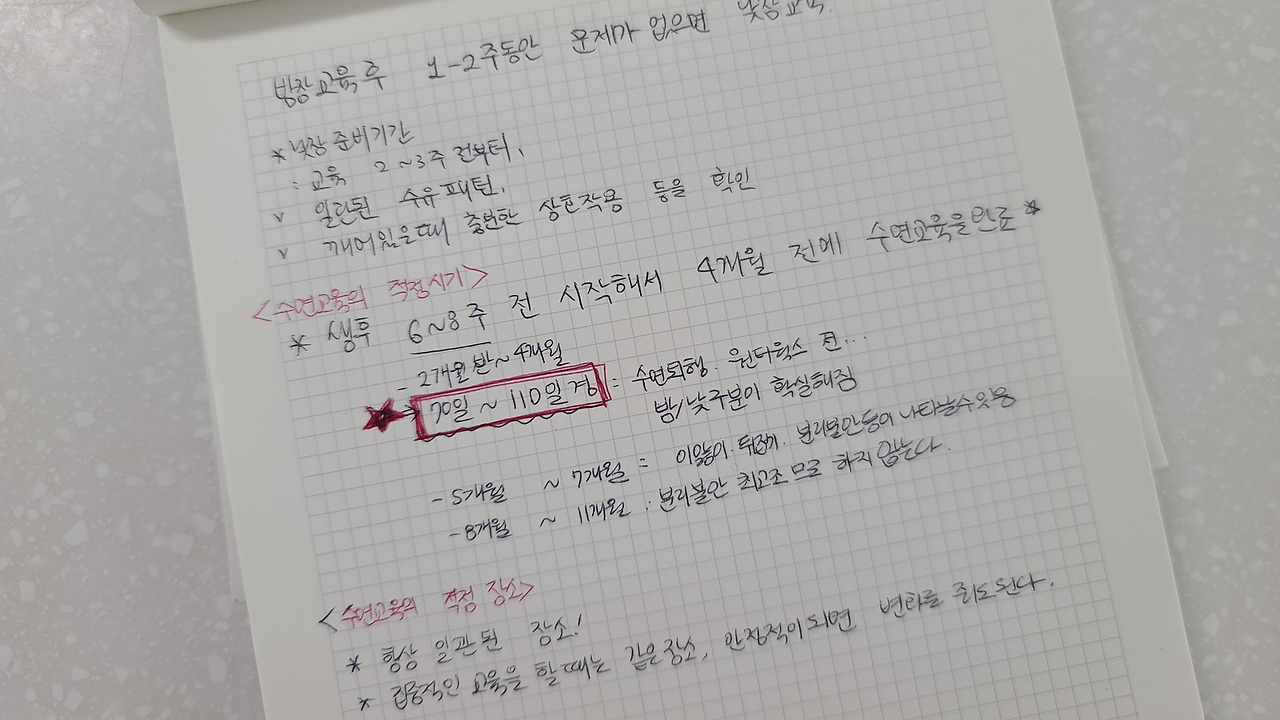 밤잠교육 후 1-2주동안 문제가 없으면 낮잠교육.
* 낮잠 준비기간
: 교육 2~3주 전부터,
v 일관된 수유패턴,
v 깨어있을때 충분한 상호작용 등을 확인
<수면교육의 적정시기>
* 생후 6~8주 전 시작해서 4개월 전에 수면교육을완료 *
- 2개월 반~ 4개월
★→ 70일 ~ 110일 경 : 수면퇴행. 원더윅스 전...
밤/낮구분이 확실해짐
- 5개월 ~ 7개월 : 이앓이. 뒤집기. 분리불안등이 나타날수있음
- 8개월 ~ 11개월 : 분리불안 최고조 므로 하지 않는다.
<수면교육의 적정 장소>
* 항상 일관된 장소!
* 집중적인 교육을 할때는 같은장소, 안정적이되면 변화를 줘도된다.